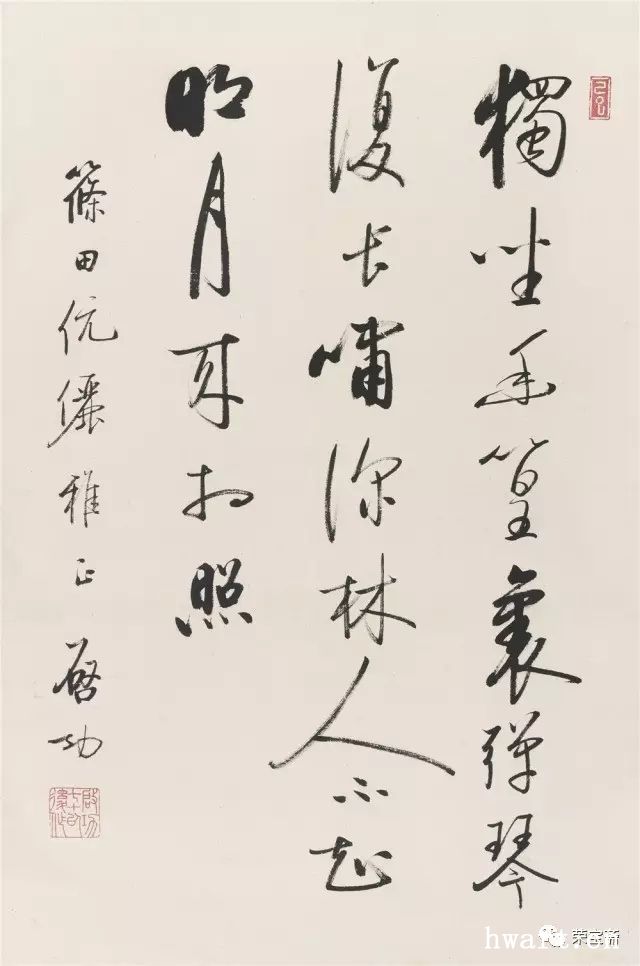 獨坐幽篁裏彈琴
復长嘯深林人不知
明月來相照
篠田伉儷雅正 啓功
荣宝斋